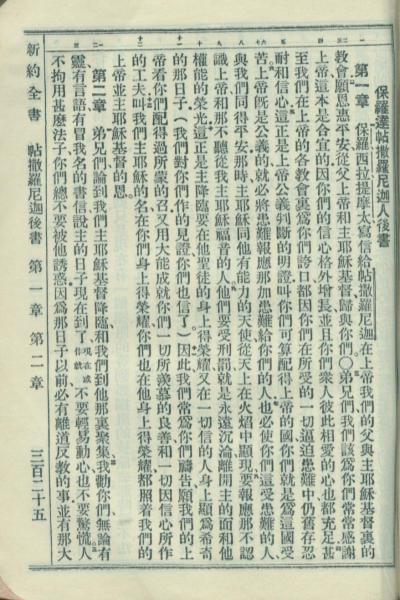 保羅達帖撒羅尼迦人後書
第一章 保羅西拉提摩太寫信給帖撒羅尼迦在上帝我們的父與主耶穌基督裏的
教會願恩惠平安從父上帝和主耶穌基督歸與你們〇弟兄們我們該爲你們常常感謝
上帝這本是合宜的因你們的信心格外增長並且你們衆人彼此相愛的心也都充足甚
至我們在上帝的各教會裏爲你們誇口都因你們在所受的一切逼迫患難中仍舊存忍
耐和信心這正是上帝公義判斷的明證叫你們可算配得上帝的國你們就是爲這國受
苦上帝旣是公義的就必將患難報應那加患難給你們的人也必使你們這受患難的人
與我們同得平安那時主耶穌同他有能力的天使從天上在火焰中顯現要報應那不認
識上帝和那不聽從我主耶穌福音的人他們要受刑罰就是永遠沉淪離開主的面和他
權能的榮光這正是主降臨要在他聖徒的身上得榮耀又在一切信的人身上顯爲希奇
的那日子（我們對你們作的見證你們也信了）因此我們常爲你們禱告願我們的上
帝看你們配得過所蒙的召又用大能成就你們一切所羨慕的良善和一切因信心所作
的工夫叫我們主耶穌的名在你們身上得榮耀你們也在他身上得榮耀都照着我們的
上帝並主耶穌基督的恩
第二章 弟兄們論到我們主耶穌基督降臨和我們到他那裏聚集我勸你們無論有
靈有言語有冒我名的書信說主的日子現在到了現在或作就不要輕易動心也不要驚慌人
不拘用甚麽法子你們總不要被他誘惑因爲那日子以前必有離道反教的事並有那大
新約全書 帖撒羅尼迦後書 第一章 第二章 三百二十五